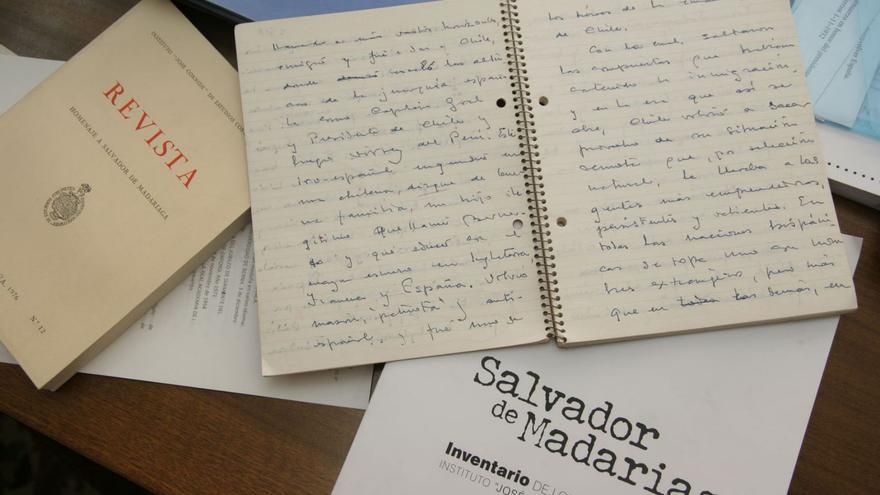 INSTITUTO "JOSÉ CORNIDE" DE ESTUDIOS COR
REVISTA
HOMENAJE A SALVADOR DE MADARIAGA
A, 1976
N.º 12
llamado a más vastos horizontes
emigró y fué a dar a Chile,
donde escaló las altu
ras de la jerarquía españo
la como Capitán Gral
y Presidente de Chile y
luego virrey del Perú. Este
iro-español engendró en
una chilena, aunque de bue
na familia, un hijo ile
gítimo que llamó Bernar
do y que educó en el
mayor esmero en Inglaterra,
Francia y España. Volvió
masón, "patriota" y anti-
español, y fué uno de
los héroes de la
de Chile.
Con lo cual, saltaron
las compuertas que habían
contenido la inmigración
y en la era que así se
abre, Chile volvió a sacar
provecho de su situación
remota que, por selección
natural, le llevaba a las
gentes más emprendedoras,
persistentes y valientes. En
todas las naciones hispáni
cas se topa uno con nom
bres extranjeros, pero más
que en todas las demás, en
Salvador
de Madariaga
Inventario DE LO
INSTITUTO "JOSÉ